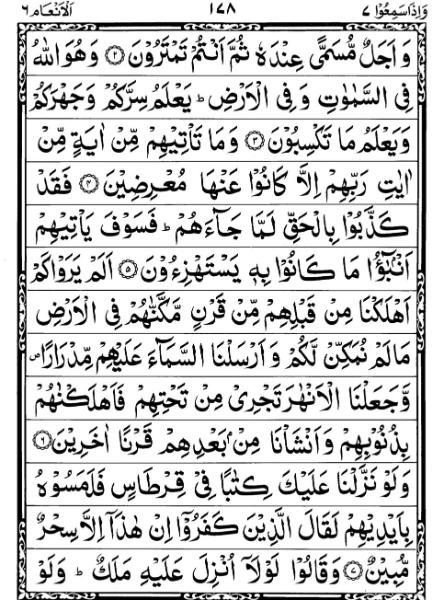 وَاِذَا سَمِعُوْا ٧ ١٧٨ اَلْاَنْعَام ٦
وَ اَجَلٌ مُّسَمًّى عِنْدَهٗ ثُمَّ اَنْتُمْ تَمْتَرُوْنَ ۝٢ وَ هُوَ اللّٰهُ
فِى السَّمٰوٰتِ وَ فِى الْاَرْضِ ؕ يَعْلَمُ سِرَّكُمْ وَ جَهْرَكُمْ
وَ يَعْلَمُ مَا تَكْسِبُوْنَ ۝٣ وَ مَا تَاْتِيْهِمْ مِّنْ اٰيَةٍ مِّنْ
اٰيٰتِ رَبِّهِمْ اِلَّا كَانُوْا عَنْهَا مُعْرِضِيْنَ ۝٤ فَقَدْ
كَذَّبُوْا بِالْحَقِّ لَمَّا جَآءَهُمْ ؕ فَسَوْفَ يَاْتِيْهِمْ
اَنْۢبٰٓؤُا مَا كَانُوْا بِهٖ يَسْتَهْزِءُوْنَ ۝٥ اَلَمْ يَرَوْا كَمْ
اَهْلَكْنَا مِنْ قَبْلِهِمْ مِّنْ قَرْنٍ مَّكَّنّٰهُمْ فِى الْاَرْضِ
مَا لَمْ نُمَكِّنْ لَّكُمْ وَ اَرْسَلْنَا السَّمَآءَ عَلَيْهِمْ مِّدْرَارًا ۪
وَّ جَعَلْنَا الْاَنْهٰرَ تَجْرِىْ مِنْ تَحْتِهِمْ فَاَهْلَكْنٰهُمْ
بِذُنُوْبِهِمْ وَ اَنْشَاْنَا مِنْۢ بَعْدِهِمْ قَرْنًا اٰخَرِيْنَ ۝٦
وَ لَوْ نَزَّلْنَا عَلَيْكَ كِتٰبًا فِىْ قِرْطَاسٍ فَلَمَسُوْهُ
بِاَيْدِيْهِمْ لَقَالَ الَّذِيْنَ كَفَرُوْۤا اِنْ هٰذَاۤ اِلَّا سِحْرٌ
مُّبِيْنٌ ۝٧ وَ قَالُوْا لَوْلَاۤ اُنْزِلَ عَلَيْهِ مَلَكٌ ؕ وَ لَوْ